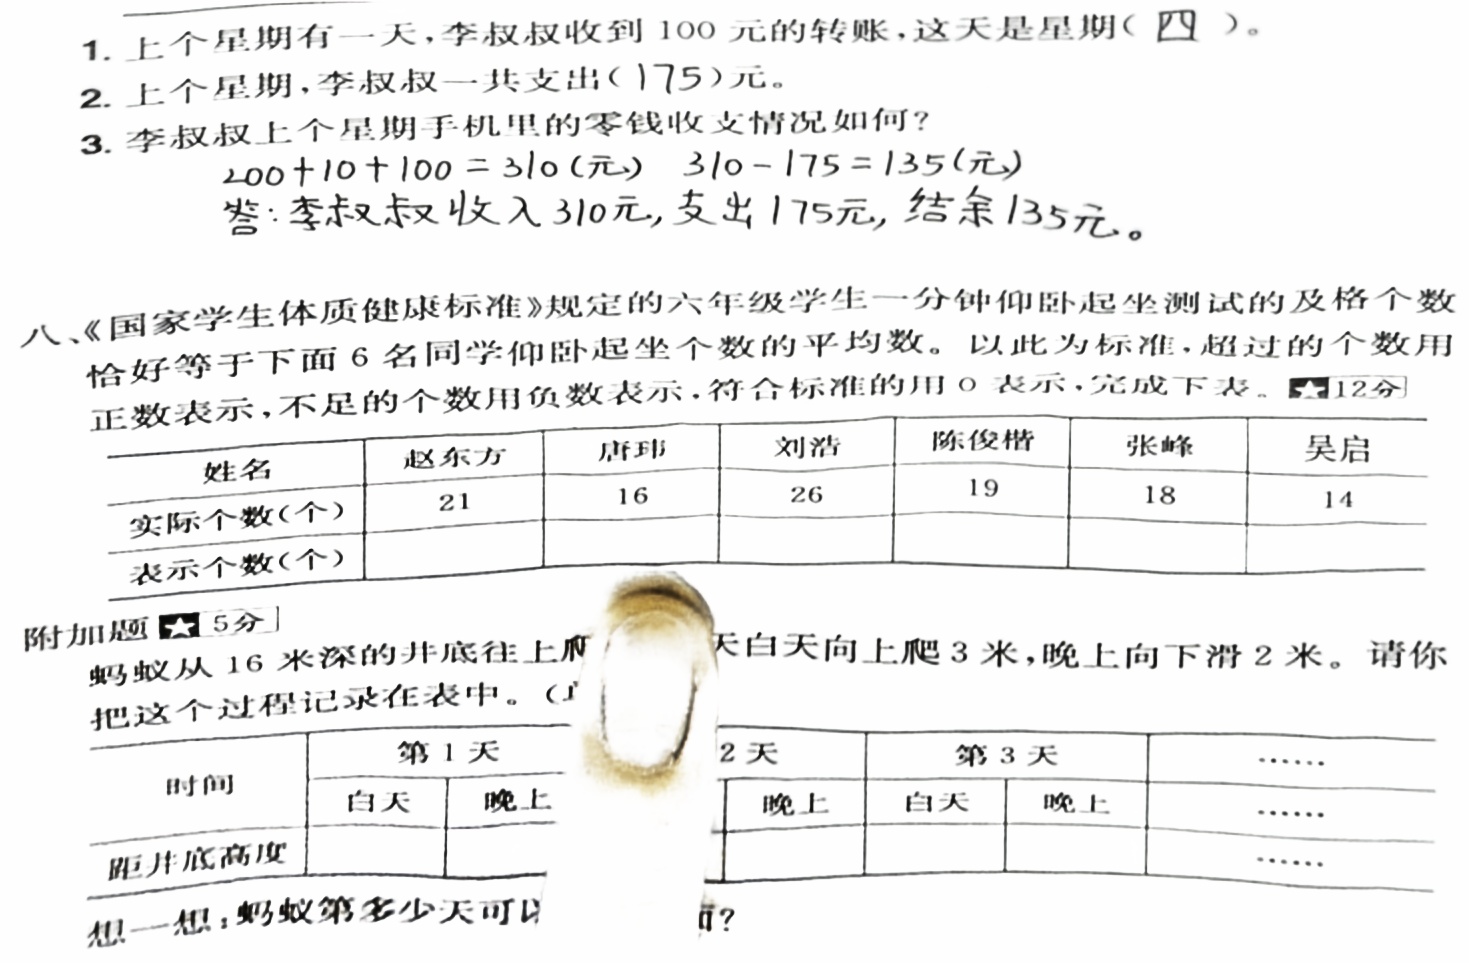 1. 上个星期有一天,李叔叔收到 100 元的转账,这天是星期( 四 )。
2. 上个星期,李叔叔一共支出(175)元。
3. 李叔叔上个星期手机里的零钱收支情况如何?
200+10+100=310(元) 310-175=135(元)
答:李叔叔收入310元,支出175元,结余135元。
八、《国家学生体质健康标准》规定的六年级学生一分钟仰卧起坐测试的及格个数
恰好等于下面 6 名同学仰卧起坐个数的平均数。以此为标准,超过的个数用
正数表示,不足的个数用负数表示,符合标准的用 0 表示,完成下表。★12分
姓名 赵东方 唐玮 刘浩 陈俊楷 张峰 吴启
实际个数(个) 21 16 26 19 18 14
表示个数(个)
附加题 ★ 5分
蚂蚁从 16 米深的井底往上爬 天白天向上爬 3 米,晚上向下滑 2 米。请你
把这个过程记录在表中。(
时间 第 1 天 2 天 第 3 天 ……
白天 晚上 晚上 白天 晚上 ……
距井底高度 ……
想一想:蚂蚁第多少天可以 ?